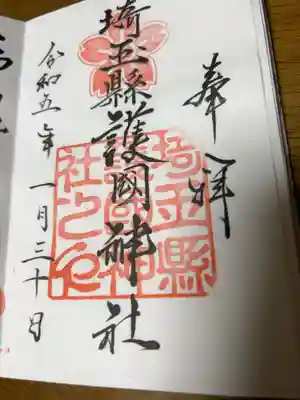 奉拝
埼玉縣護國神社
埼玉縣護國神社之印
令和五年一月三十日